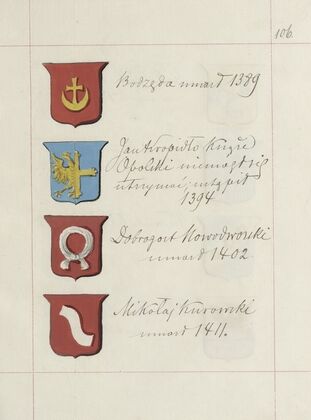 106.
Bodzęda umarł 1389
Jan Kropidło Książe
Opolski niemogł się
utrzymać, ustąpił
1394
Dobrogost Nowodworski
umarł 1402
Mikołaj Kurowski
umarł 1411.